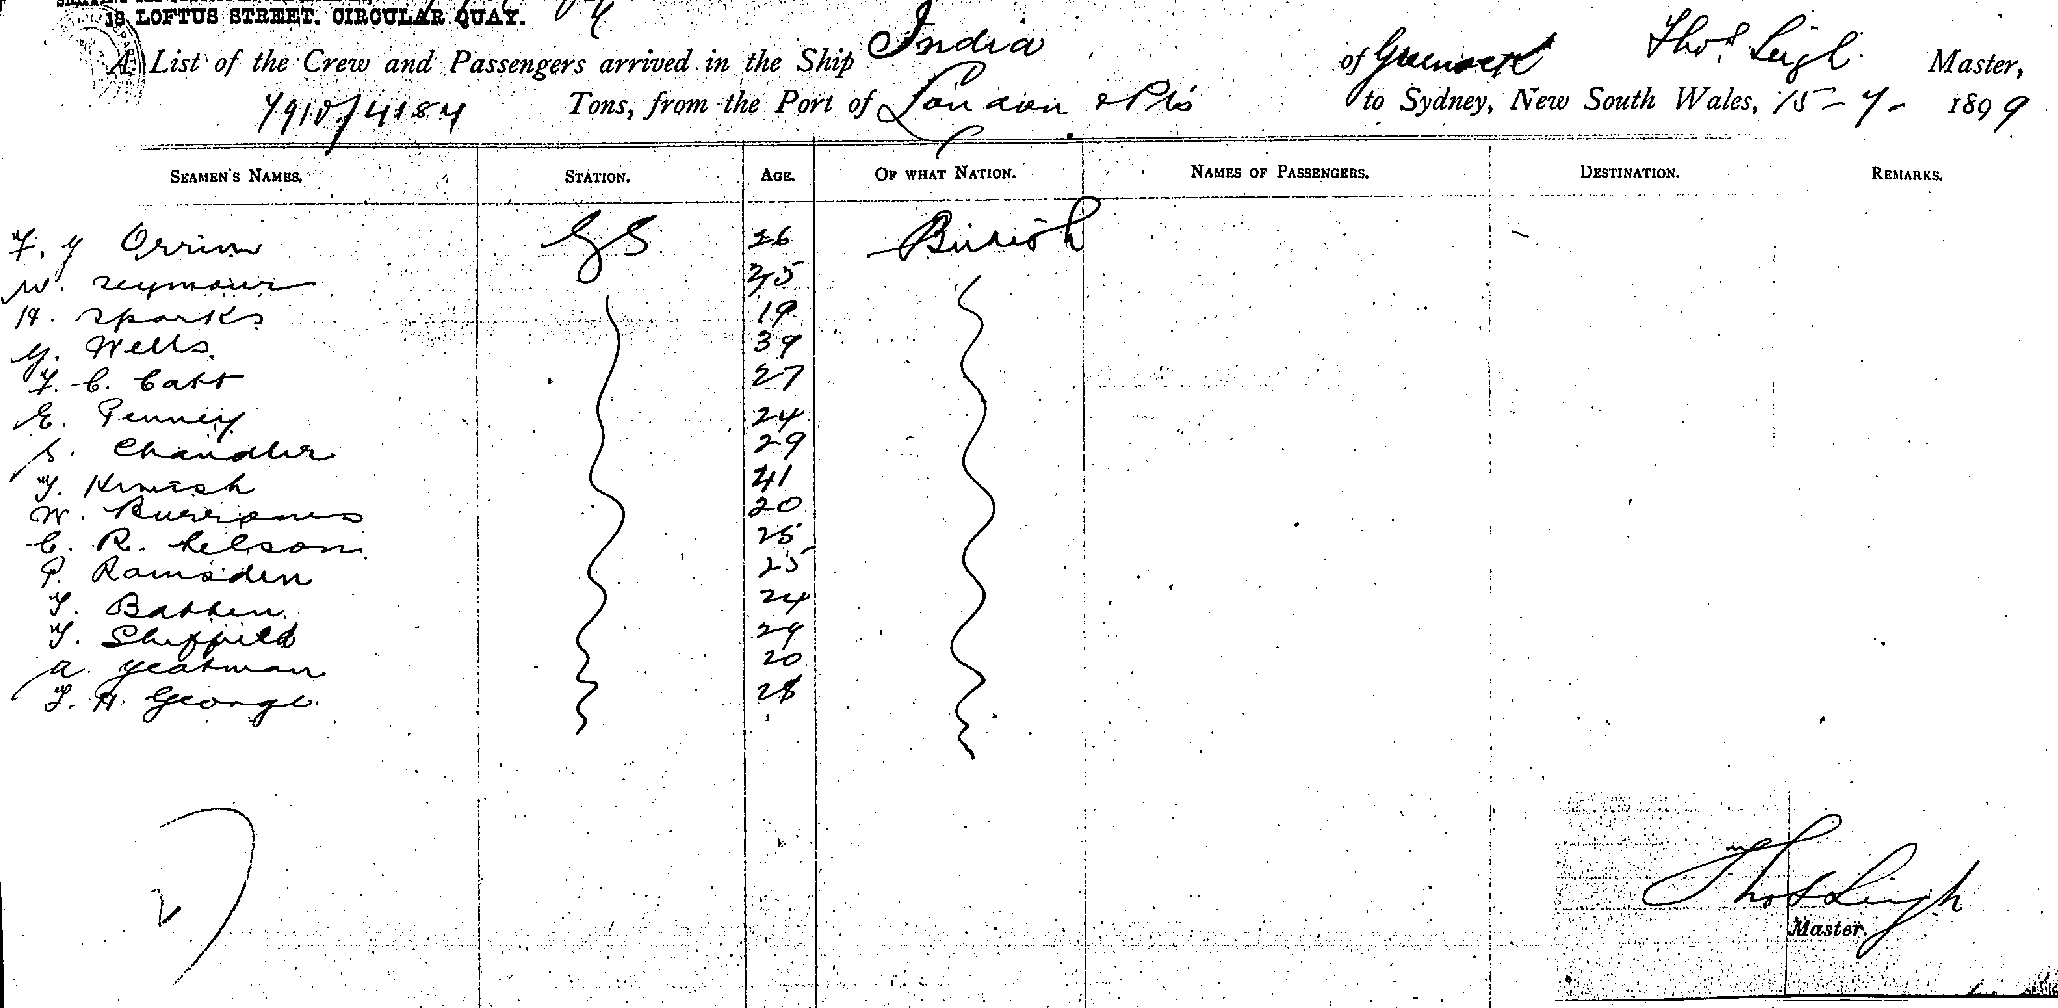 18, LOFTUS STREET. CIRCULAR QUAY.
A List of the Crew and Passengers arrived in the Ship India of Greenock Thos. Leigh Master,
7910/4184 Tons, from the Port of London & Pts to Sydney, New South Wales, 15-7- 1899
SEAMEN'S NAMES. STATION. AGE. OF WHAT NATION. NAMES OF PASSENGERS. DESTINATION. REMARKS.
F. G Orrin GS 26 British
W. Seymour
H. Sparks 19
G. Wells. 39
F. C. Catt 27
E. Penney 24
S. Chandler 29
T. 
W. 20
C. R. Nelson
P. Ramsden 25
T. Batten 24
T. Sheffield 29
A. Yeatman 20
T. H. George. 28
Thos Leigh
Master.